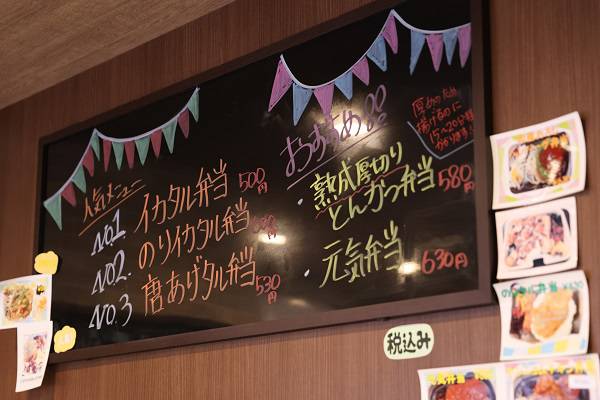 人気メニュー
No.1 イカタル弁当 500円
No.2. のりイカタル弁当 円
No.3 唐あげタル弁当 530円
おすすめ!!
・熟成厚切り
とんかつ弁当 580円
・元気弁当 630円
厚めのため
揚げるのに
15～20分程
かかります!
税込み